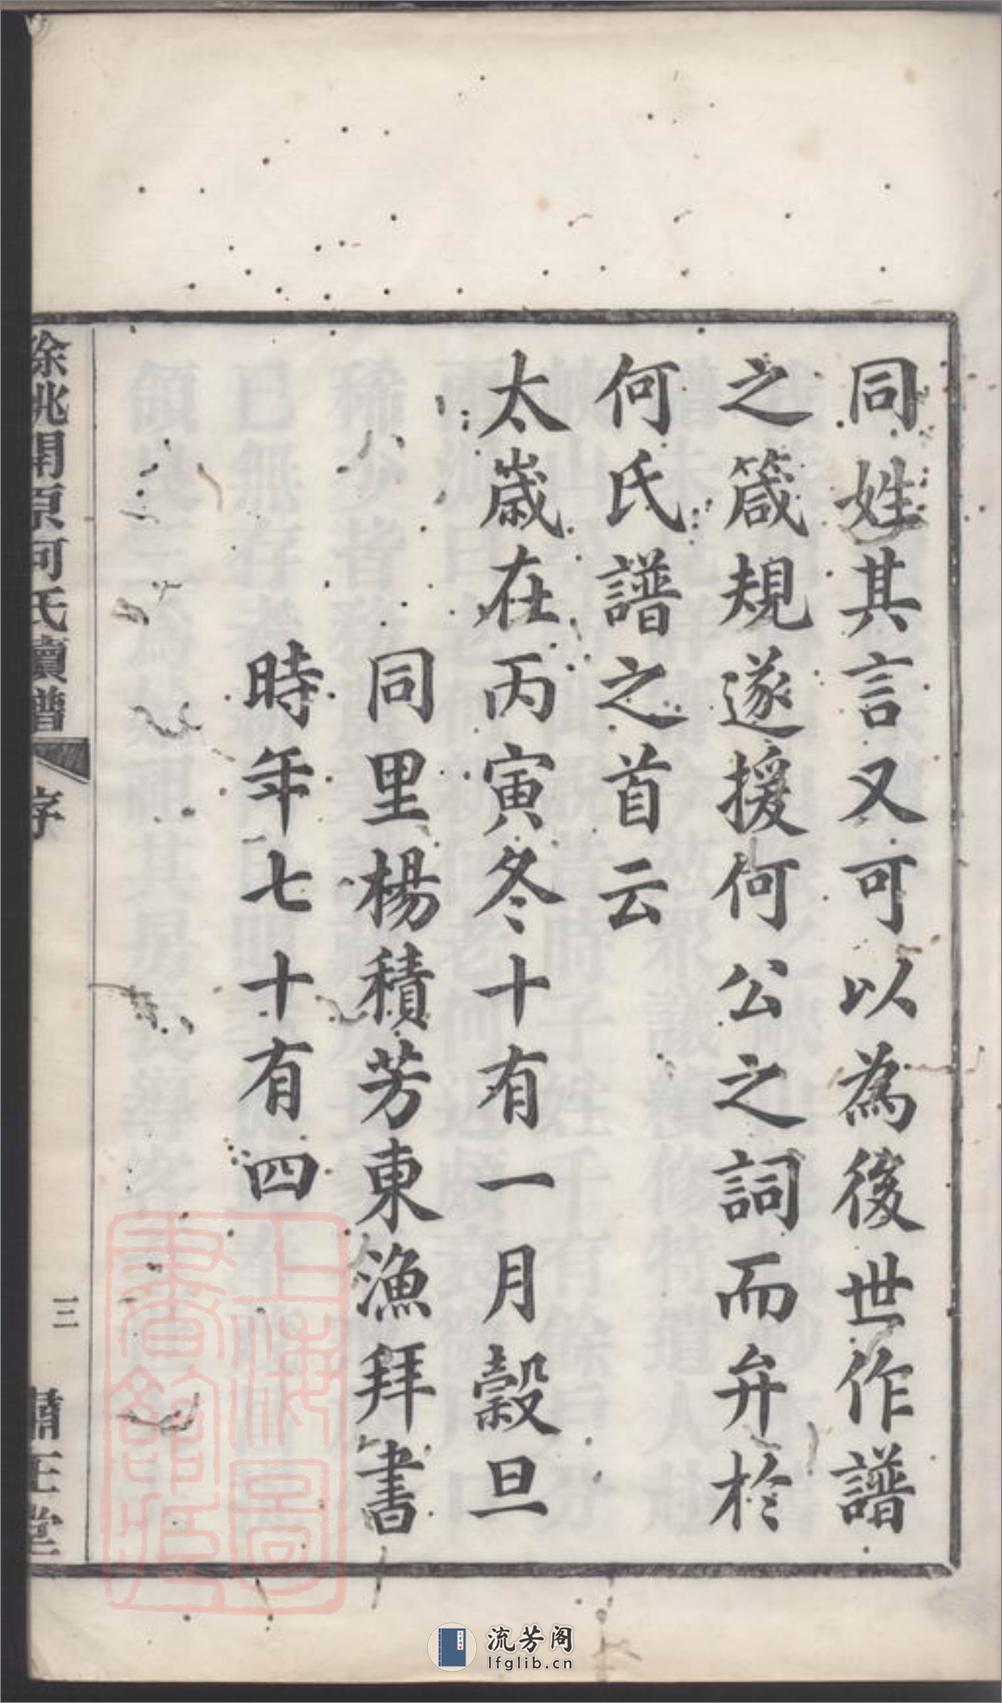 同姓其言又可以為後世作譜
之箴規遂援何公之詞而弁於
何氏譜之首云
太歲在丙寅冬十有一月穀旦
同里楊積芳東漁拜書
時年七十有四
餘姚開原何氏續譜
序
三
上海圖書館藏
流芳阁
lfglib.cn